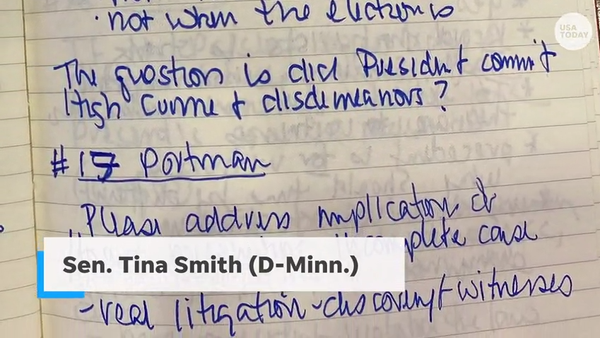 · not when the election is
USA TODAY
The question is did President commit
High Crime & disdemeanors?
#17 Portman
"Please address implication of
complete case
Sen. Tina Smith (D-Minn.)
- real litigation - discovery & witnesses